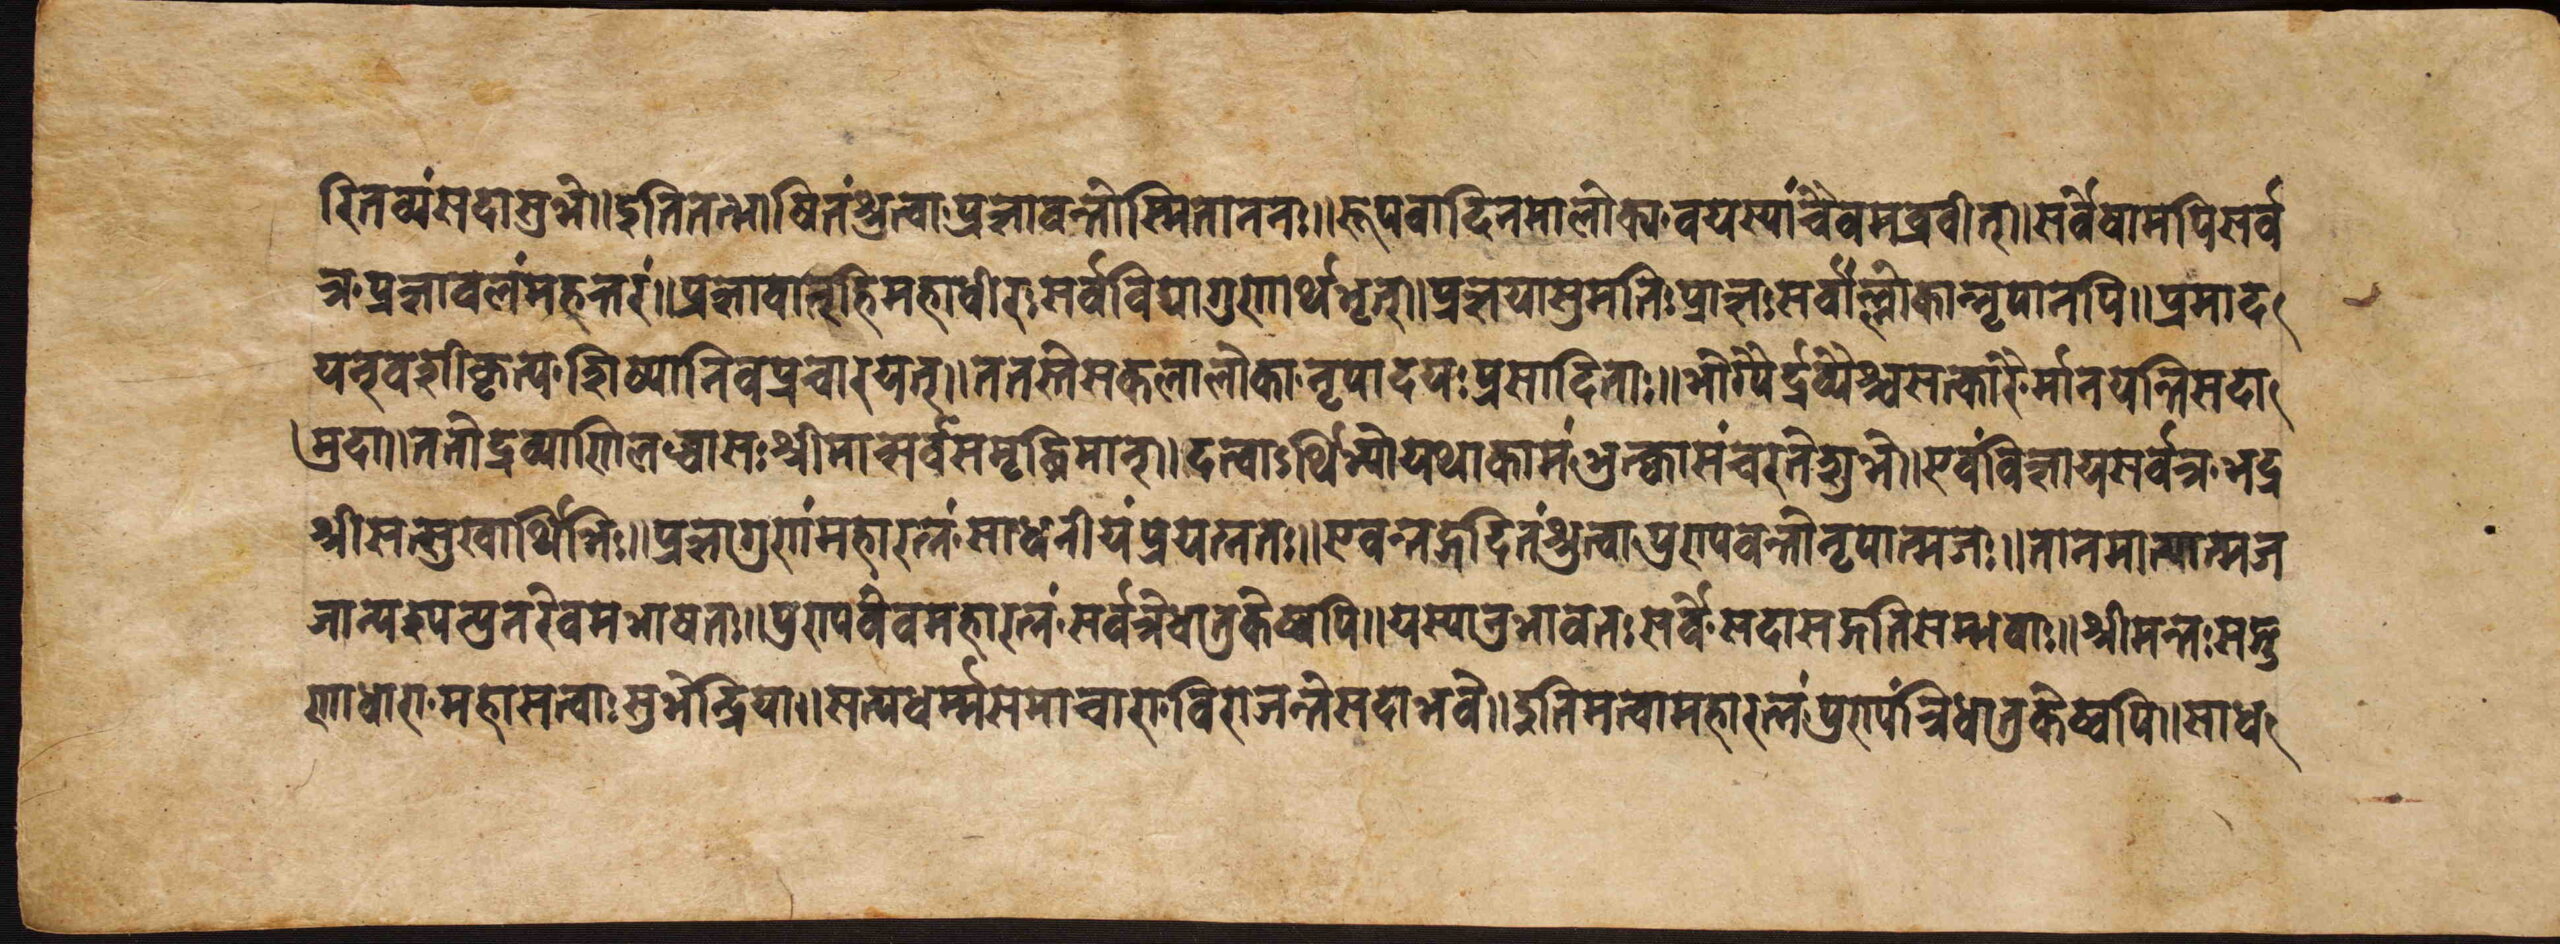 रितव्यंसदासुभे॥इतितेनभाषितंश्रुत्वा,प्रज्ञावन्तोस्मिताननः॥रूपवादिनमालोक्य,वयस्यांश्चैवमब्रवीत्॥सर्वेषामपिसर्व
त्र,प्रज्ञाबलंमहत्तरं॥प्रज्ञावान्हिमहाधीरः,सर्वविद्यागुणार्थभृत्॥प्रज्ञयासुमतिःप्राज्ञः,सर्वाल्लोकान्नृपानपि॥प्रमाद
यन्वशीकृत्य,शिष्यानिवप्रचारयेत्॥ततस्तेसकलालोका,नृपादयःप्रसादिताः॥भोग्यैर्द्रव्यैश्चसत्कारै,र्मानयन्तिसदा
मुदा॥ततोद्रव्याणिलब्धासः,श्रीमान्सर्वसमृद्धिमान्॥दत्वाऽर्थिभ्योयथाकामं,भुक्त्वासंचरतेशुभे॥एवंविज्ञायसर्वत्र,भद्र
श्रीसत्सुखार्थिभिः॥प्रज्ञागुणंमहारत्नं,साधनीयंप्रयत्नतः॥एवन्तद्गदितंश्रुत्वा,पुण्यवन्तोनृपात्मजः॥तानमात्यात्मज
जान्पश्यन्पुनरेवमभाषत॥पुण्यमेवमहारत्नं,सर्वत्रैधातुकेष्वपि॥यस्यानुभावतःसर्वे,सदासद्गतिसम्भवाः॥श्रीमन्तःसद्गु
णाधारा,महासत्वाःसुभेन्द्रिया॥सत्यधर्म्मसमाचारा,विराजन्तेसदाभवे॥इतिमत्वामहारत्नं,पुण्यंत्रिधातुकेष्वपि॥साध